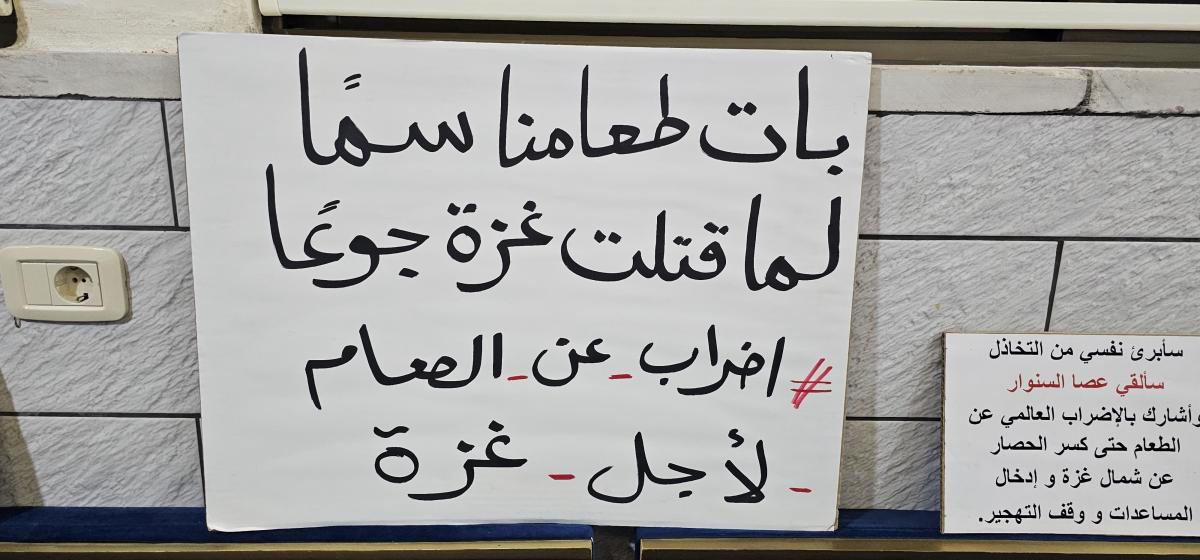 بات طعامنا سمًا
لما قتلت غزة جوعًا
#اضراب_عن_الطعام
_لأجل_غزة
سأبرئ نفسي من التخاذل
سألقي عصا السنوار
وأشارك بالإضراب العالمي عن
الطعام حتى كسر الحصار
عن شمال غزة و إدخال
المساعدات و وقف التهجير.